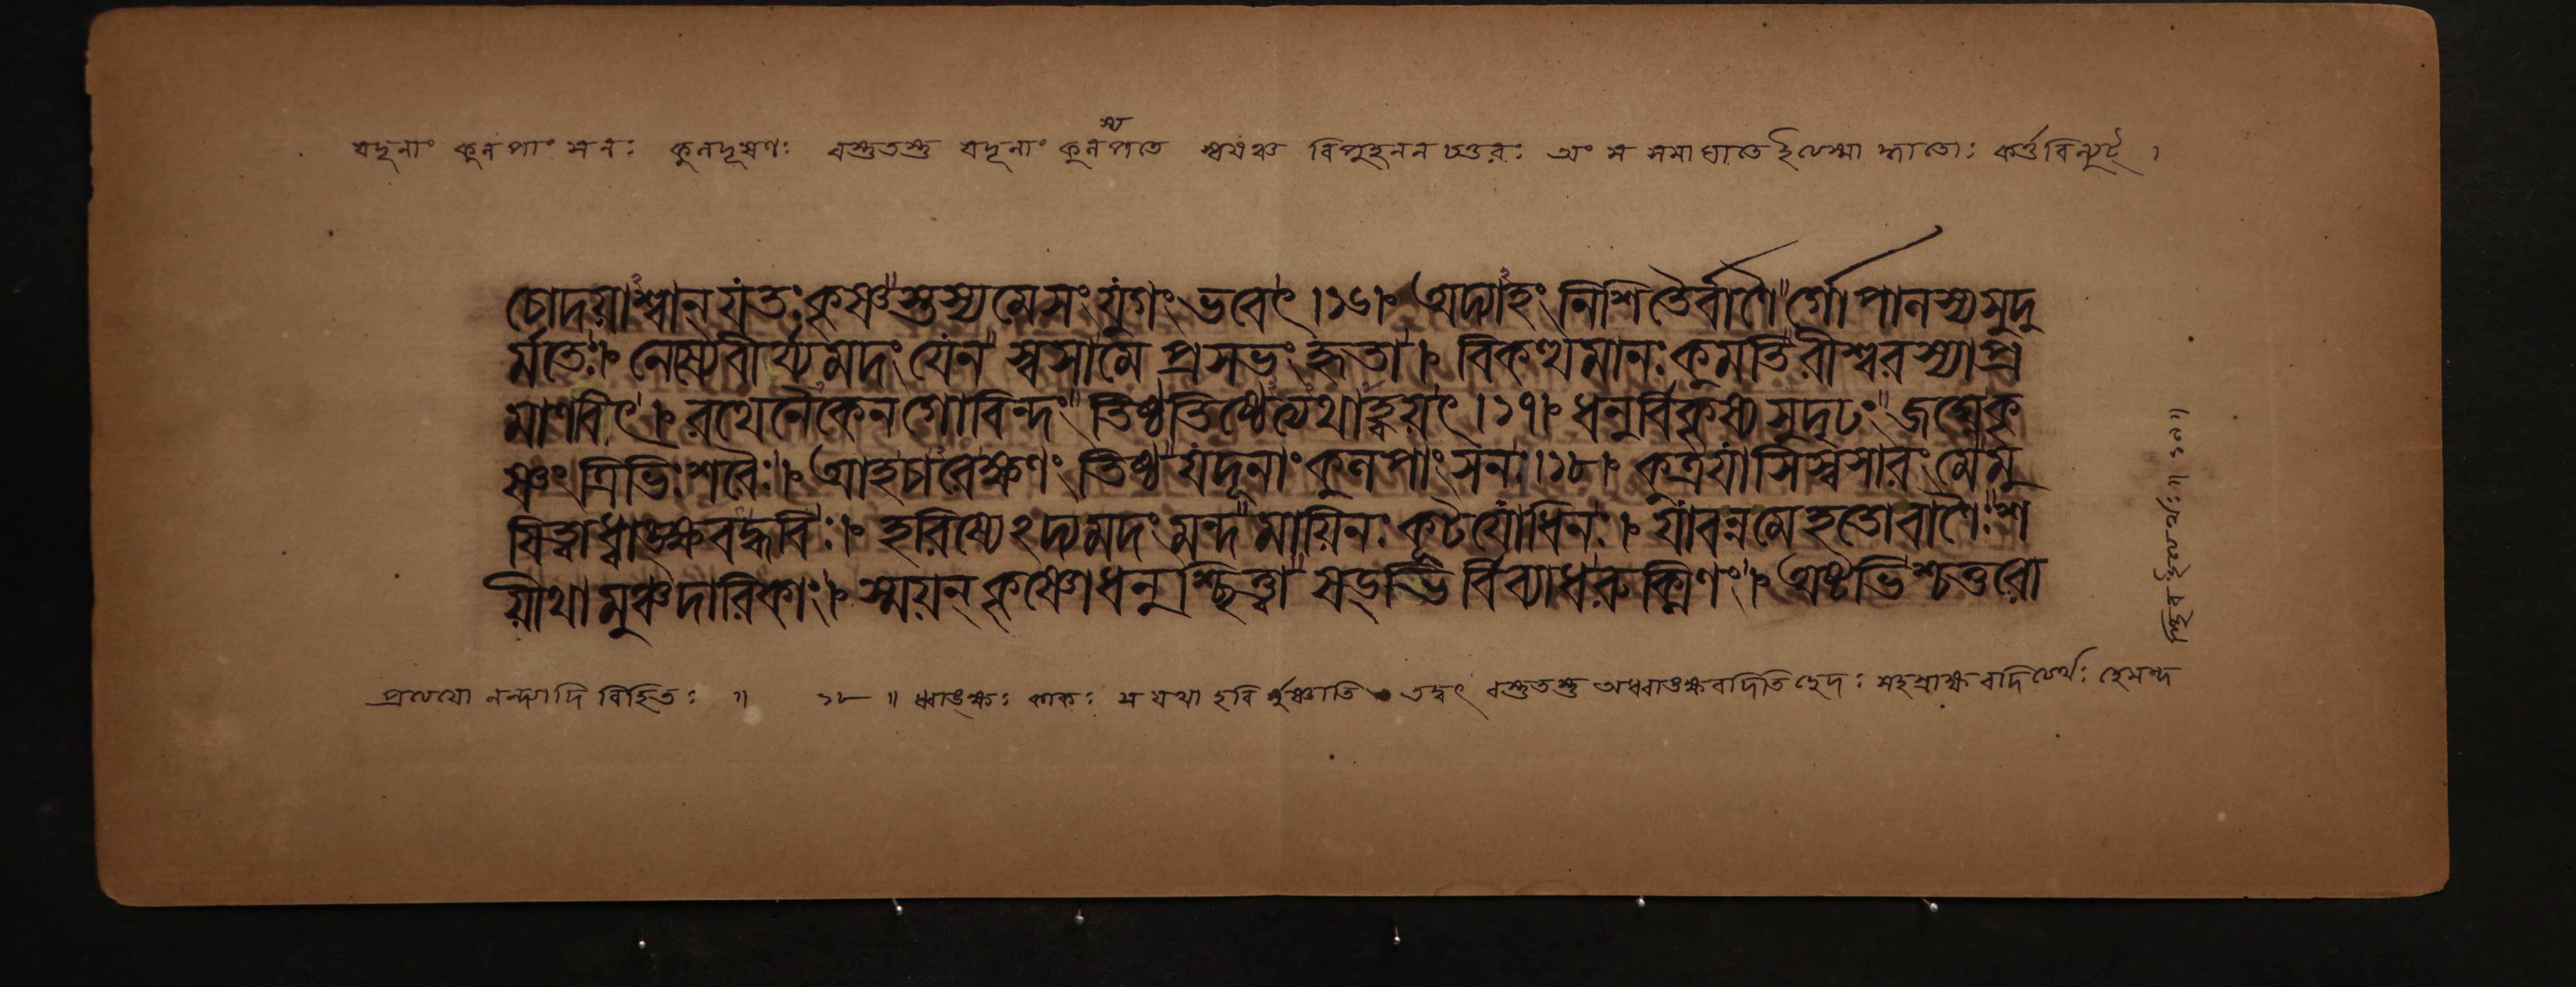 যদূনাং কুলপাংসনঃ কুলদূষণঃ বস্তুতস্তু যদূনাং কুলপতে স্বয়ঞ্চ বিপুহনন চতুরঃ অংস সমাঘাতে ইত্যস্মাদ্ধাতোঃ কর্ত্তরি ল্যুট্ ।
চোদয়াশ্বান্ যতঃ কৃষ্ণস্তস্য মে সংযুগং ভবেৎ ।১৬। অদ্যাহং নিশিতৈর্বাণৈর্গোপালস্য সুদু
র্মতেঃ। নেষ্যে বীর্য্যমদং যেন স্বসা মে প্রসভং হৃতা। বিকত্থমানঃ কুমতিরীশ্বরস্যাপ্র
মাণবিৎ। রথেনৈকেন গোবিন্দং তিষ্ঠ তিষ্ঠেত্যথাহ্বয়ৎ ।১৭। ধনুর্বিকৃষ্য সুদৃঢং জঘ্নে কৃ
ষ্ণং ত্রিভিঃ শরৈঃ। আহ চারে ক্ষণং তিষ্ঠ যদূনাং কুলপাংসন ।১৮। কুত্র যাসি স্বসারং মে মু
ষিত্বা ধ্বাঙ্ক্ষবদ্ধবিঃ। হরিষ্যেঽদ্য মদং মন্দ মায়িনঃ কূটযোধিনঃ। যাবন্ন মে হতো বাণৈঃ শ
য়ীথা মুঞ্চ দারিকাং। স্ময়ন্ কৃষ্ণো ধনুশ্ছিত্ত্বা ষড্ভির্বিব্যাধ রুক্মিণং। অষ্টভিশ্চতুরো
প্রত্যয়ো নন্দ্যাদি বিহিতঃ ॥ ১৮ ॥ ধ্বাঙ্ক্ষঃ কাকঃ স যথা হবির্মুষ্ণাতি তদ্বৎ বস্তুতস্তু অধ্বাঙ্ক্ষবদিতি ছেদঃ সহস্রাক্ষবদিত্যর্থঃ হে মন্দ